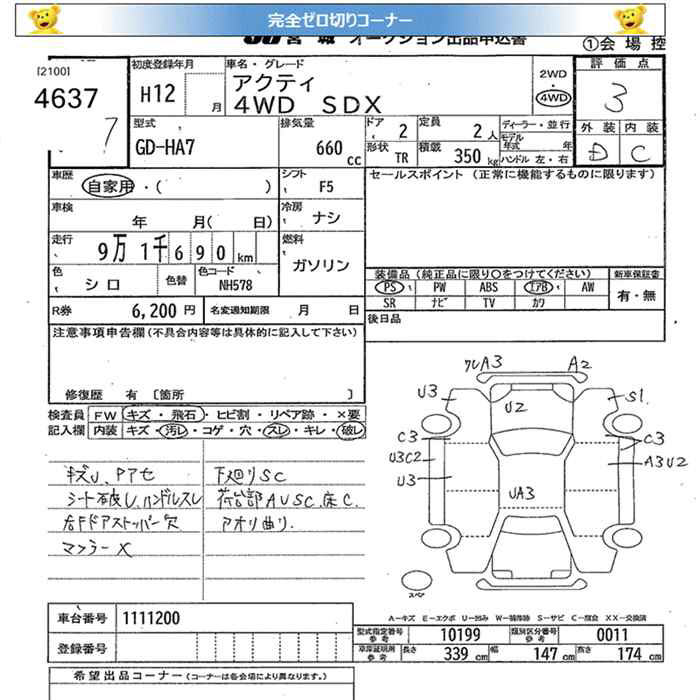 完全ゼロ切りコーナー
JU宮城 オークション出品申込書
①会場控
[2100]
4637
7
初度登録年月
H12 月
車名・グレード
アクティ
4WD SDX
2WD
・
4WD
評価点
3
外装 内装
D C
型式
GD-HA7
排気量
660 cc
ドア 2
定員 2人
形状 TR
積載 350 kg
ディーラー・並行
モデル年式 年
ハンドル 左・右
車歴
自家用・( )
シフト F5
車検
年 月( 日)
冷房 ナシ
走行
9万1千690km
燃料
ガソリン
色 シロ
色替
色コード
NH578
R券 6,200円
名変通知期限 月 日
セールスポイント (正常に機能するものに限ります)
装備品 (純正品に限り〇をつけてください)
新車保証書
PS PW ABS エアB AW
SR ナビ TV カワ
有・無
後日品
注意事項申告欄 (不具合内容等は具体的に記入して下さい)
修復歴 有 〔箇所 〕
検査員記入欄
FW キズ・飛石・ヒビ割・リペア跡・×要
内装 キズ・汚レ・コゲ・穴・スレ・キレ・破レ
キズU、Pアセ
シート破レ、ハンドルスレ
右Fドアストッパー欠
マフラーX
下廻りSC
荷台部AUSC、床C.
アオリ曲り.
ワレA3
A2
U3
U2
S1
C3
C3
U3C2
A3U2
U3
UA3
スペア
A―キズ E―エクボ U―凹み W―補修跡 S―サビ C―腐食 XX―交換済
車台番号 1111200
登録番号
型式指定番号 参考 10199
類別区分番号 参考 0011
車庫証明用 参考
長さ 339 cm
幅 147 cm
高さ 174 cm
希望出品コーナー (コーナーは各会場により異なります。)